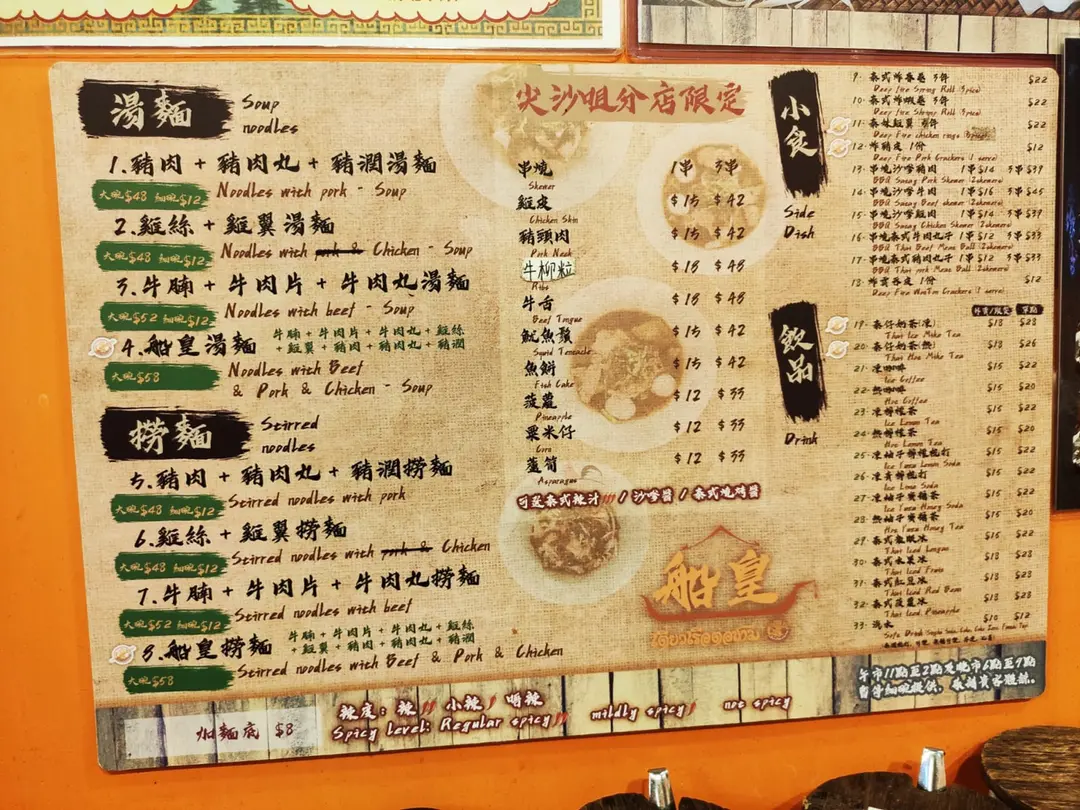 湯麵
Soup
noodles
1.豬肉 + 豬肉丸 + 豬潤湯麵
大碗$48 細碗$12
Noodles with pork - Soup
2.雞絲 + 雞翼湯麵
大碗$48 細碗$12
Noodles with pork & Chicken - Soup
3.牛腩 + 牛肉片 + 牛肉丸湯麵
大碗$52 細碗$12
Noodles with beef - Soup
4.船皇湯麵
牛腩 + 牛肉片 + 牛肉丸 + 雞絲
+ 雞翼 + 豬肉 + 豬肉丸 + 豬潤
大碗$58
Noodles with Beef
& Pork & Chicken - Soup
撈麵
Stirred
noodles
5.豬肉 + 豬肉丸 + 豬潤撈麵
大碗$48 細碗$12
Stirred noodles with pork
6.雞絲 + 雞翼撈麵
大碗$48 細碗$12
Stirred noodles with pork & Chicken
7.牛腩 + 牛肉片 + 牛肉丸撈麵
大碗$52 細碗$12
Stirred noodles with beef
8.船皇撈麵
牛腩 + 牛肉片 + 牛肉丸 + 雞絲
+ 雞翼 + 豬肉 + 豬肉丸 + 豬潤
大碗$58
Stirred noodles with Beef & Pork & Chicken
加麵底 $8
辣度: 辣 小辣 唔辣
Spicy Level: Regular spicy mildly spicy not spicy
尖沙咀分店限定
串燒 1串 3串
Skewer
雞皮 $15 $42
Chicken Skin
豬頭肉 $15 $42
Pork Neck
牛柳粒 $18 $48
Ribs
牛舌 $18 $48
Beef Tongue
魷魚鬚 $15 $42
Squid Tentacle
魚餅 $15 $42
Fish Cake
菠蘿 $12 $33
Pineapple
粟米仔 $12 $33
Corn
蘆筍 $12 $33
Asparagus
可選泰式辣汁 / 沙嗲醬 / 泰式燒烤醬
船皇
小食
Side
Dish
9. 泰式炸春卷 3件 $22
Deep Fire Spring Roll (3pics)
10. 泰式炸蝦卷 3件 $22
Deep Fire Shrimp Roll (3pics)
11. 泰妹雞翼 $22
12. 炸豬皮 1份 $12
Deep Fire Pork Crackers (1 serve)
13. 串燒沙嗲豬肉 1串$14 3串$39
BBQ Satay Pork Skewer
14. 串燒沙嗲牛肉 1串$16 3串$45
BBQ Satay Beef skewer
15. 串燒沙嗲雞肉 1串$14 3串$39
BBQ Satay Chicken Skewer
16. 串燒泰式牛肉丸子 1串$12 3串$33
BBQ Thai Beef Meat Ball
17. 串燒泰式豬肉丸子 1串$12 3串$33
BBQ Thai pork Meat Ball
18. 炸雲吞皮 1份 $12
Deep Fire WonTon Crackers (1 serve)
飲品
Drink
19. 泰仔奶茶(凍) $18 $28
Thai Ice Milk Tea
20. 泰仔奶茶(熱) $18 $26
Thai Hot Milk Tea
21. 凍咖啡 $15 $22
Ice Coffee
22. 熱咖啡 $15 $20
Hot Coffee
23. 凍檸檬茶 $15 $22
Ice Lemon Tea
24. 熱檸檬茶 $15 $20
Hot Lemon Tea
25. 凍柚子檸檬梳打 $15 $22
Ice Yuzu Lemon Soda
26. 凍青檸梳打 $15 $22
Ice Lime Soda
27. 凍柚子蜜糖茶 $15 $22
Ice Yuzu Honey Soda
28. 熱柚子蜜糖茶 $15 $20
Hot Yuzu Honey Tea
29. 泰式龍眼冰 $15 $22
Thai Iced Longan
30. 泰式水果冰 $18 $28
Thai Iced Fruits
31. 泰式紅豆冰 $18 $28
Thai Iced Red Bean
32. 泰式菠蘿冰 $18 $28
Thai Iced Pineapple
33. 汽水 $10 $12
午市11點至2點及晚市6點至9點
暫停細碗提供